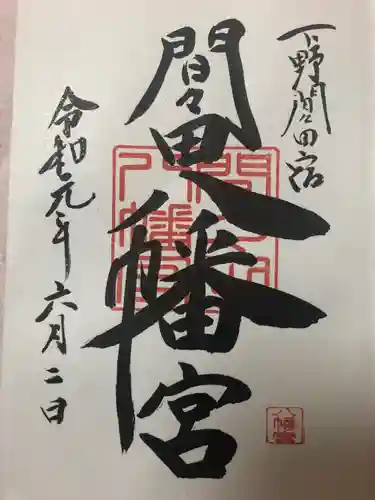 下野間々田宿
間々田八幡宮
令和元年六月二日
間々田
八幡宮
八幡宮